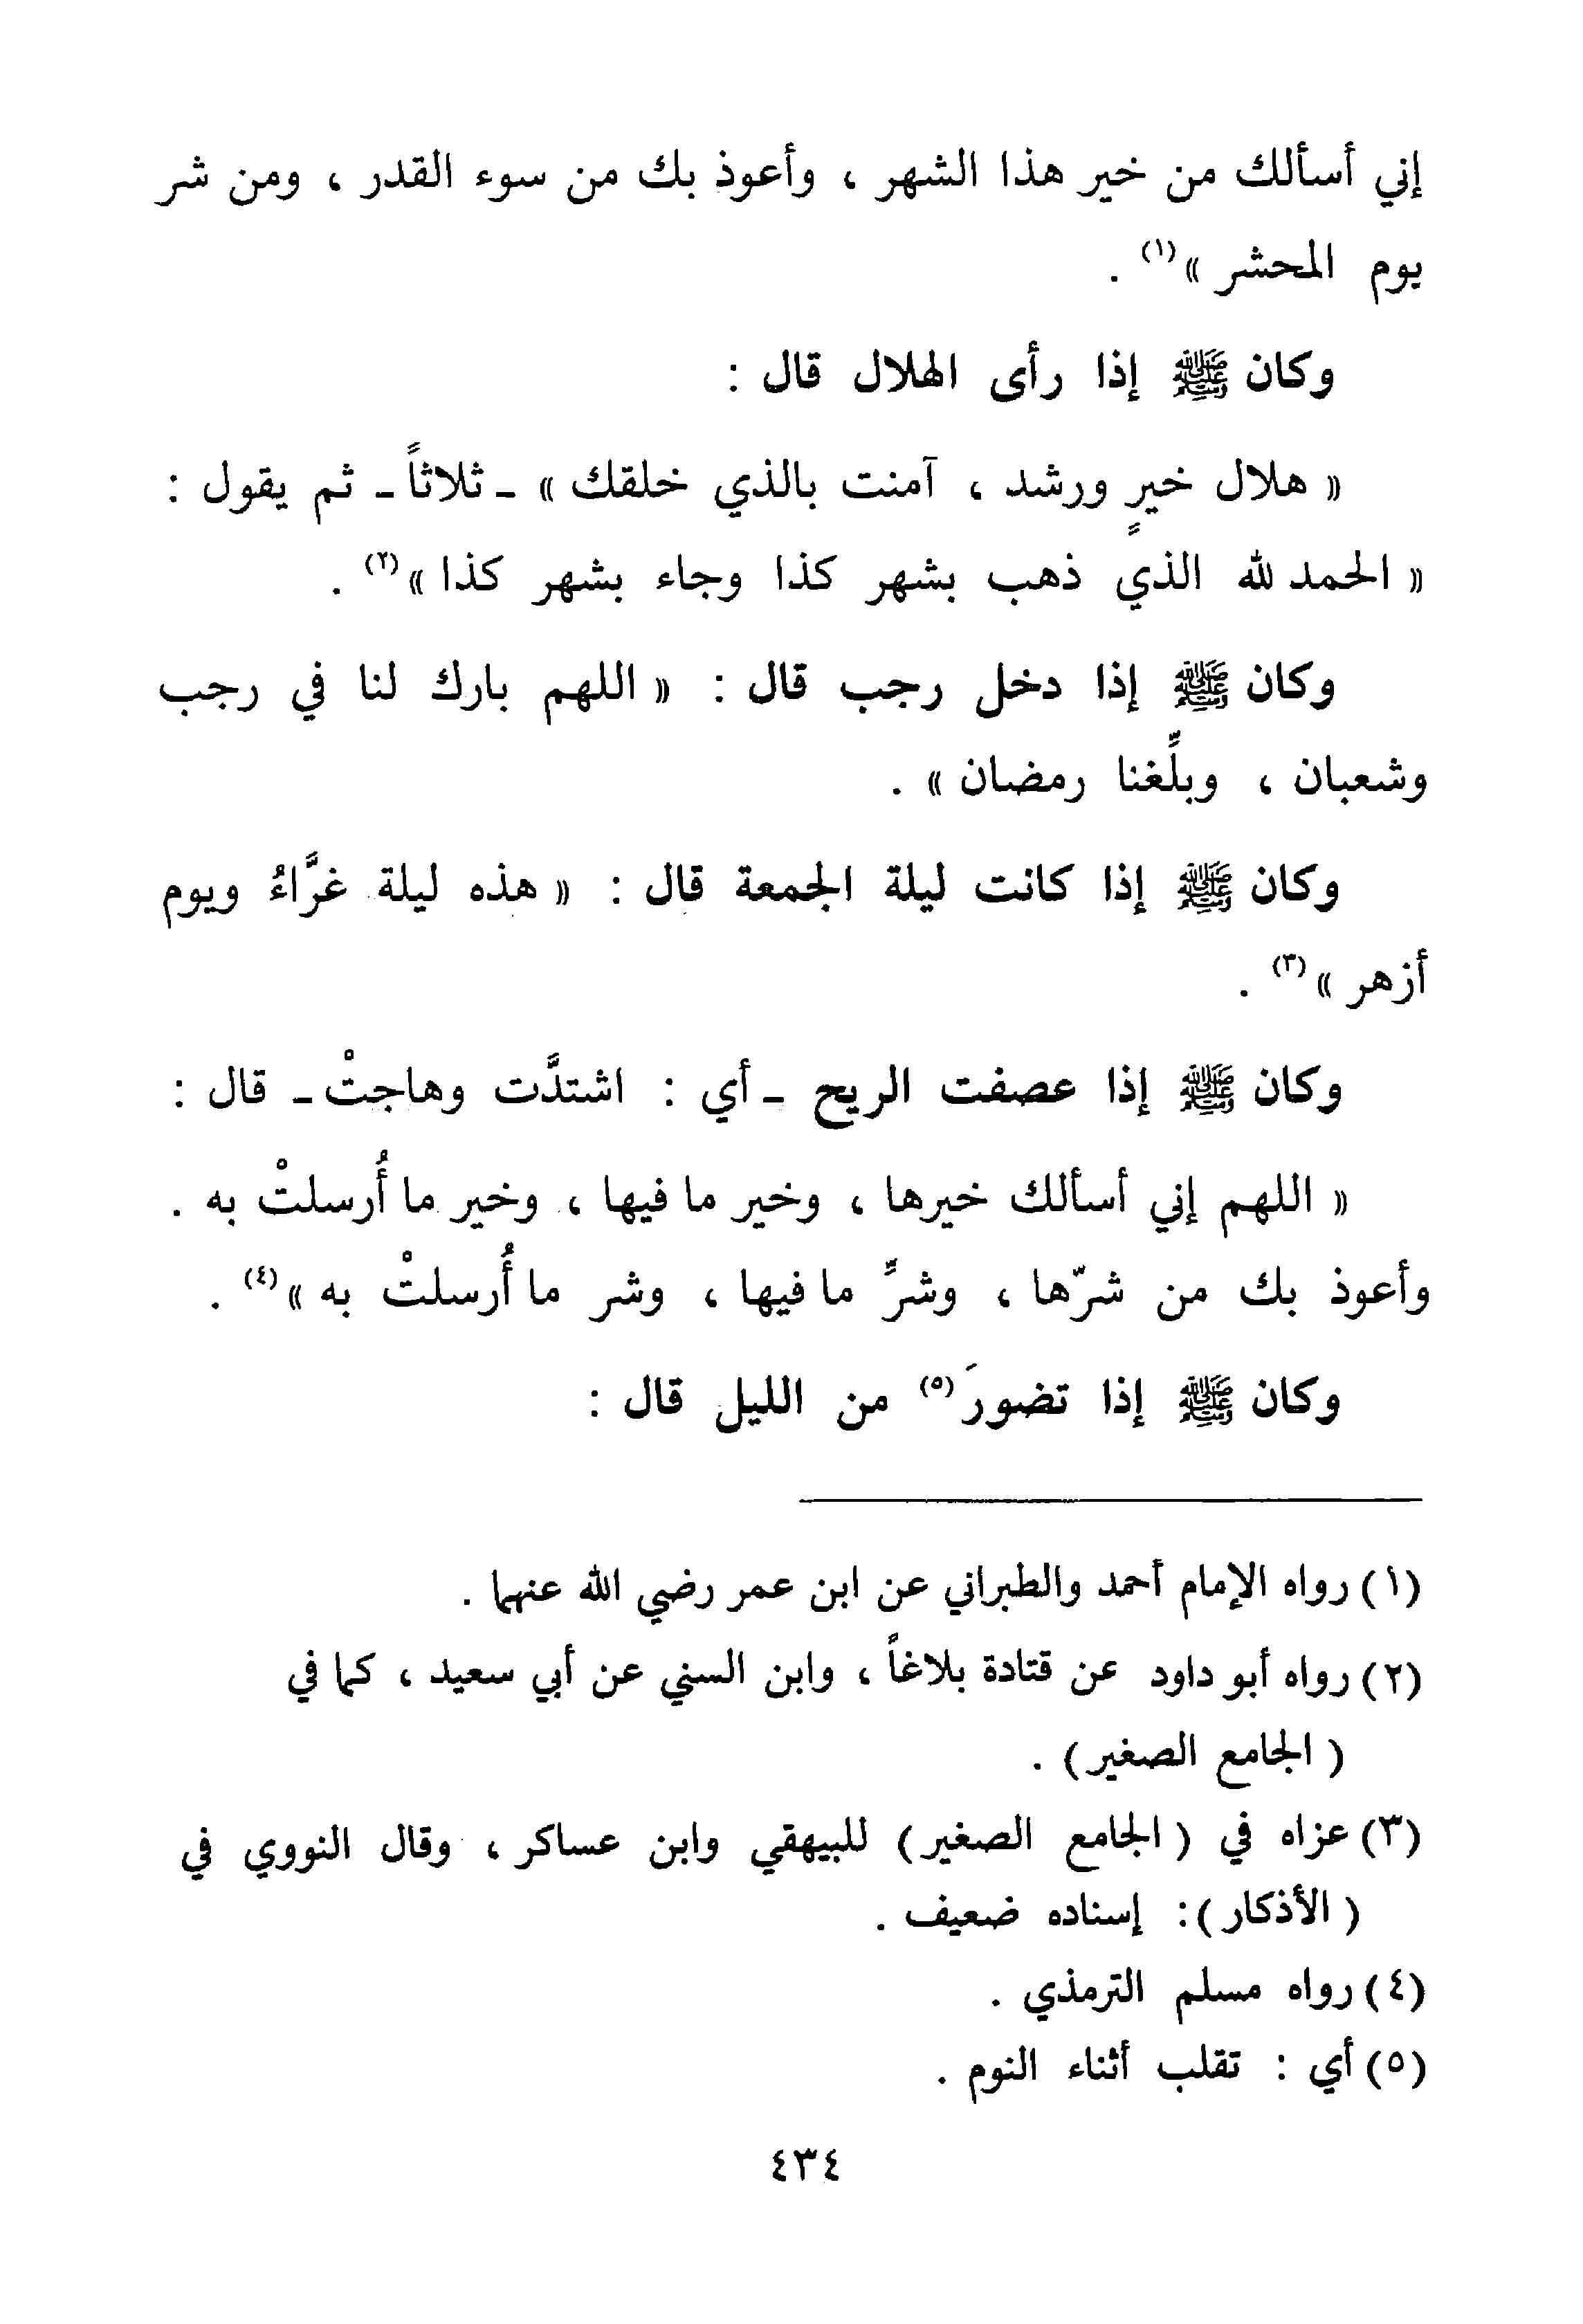 إني أسألك من خير هذا الشهر ، وأعوذ بك من سوء القدر ، ومن شر
يوم المحشر »(١) .
وكان ﷺ إذا رأى الهلال قال :
« هلال خيرٍ ورشد ، آمنت بالذي خلقك » ـ ثلاثاً ـ ثم يقول :
« الحمد لله الذي ذهب بشهر كذا وجاء بشهر كذا »(٢) .
وكان ﷺ إذا دخل رجب قال : « اللهم بارك لنا في رجب
وشعبان ، وبلِّغنا رمضان » .
وكان ﷺ إذا كانت ليلة الجمعة قال : « هذه ليلة غرَّاءُ ويوم
أزهر »(٣) .
وكان ﷺ إذا عصفت الريح ـ أي : اشتدَّت وهاجتْ ـ قال :
« اللهم إني أسألك خيرها ، وخير ما فيها ، وخير ما أُرسلتْ به .
وأعوذ بك من شرّها ، وشرِّ ما فيها ، وشر ما أُرسلتْ به »(٤) .
وكان ﷺ إذا تضورَ(٥) من الليل قال :
(١) رواه الإمام أحمد والطبراني عن ابن عمر رضي الله عنهما .
(٢) رواه أبو داود عن قتادة بلاغاً ، وابن السني عن أبي سعيد ، كما في
( الجامع الصغير ) .
(٣) عزاه في ( الجامع الصغير ) للبيهقي وابن عساكر ، وقال النووي في
( الأذكار ) : إسناده ضعيف .
(٤) رواه مسلم الترمذي .
(٥) أي : تقلب أثناء النوم .
٤٣٤